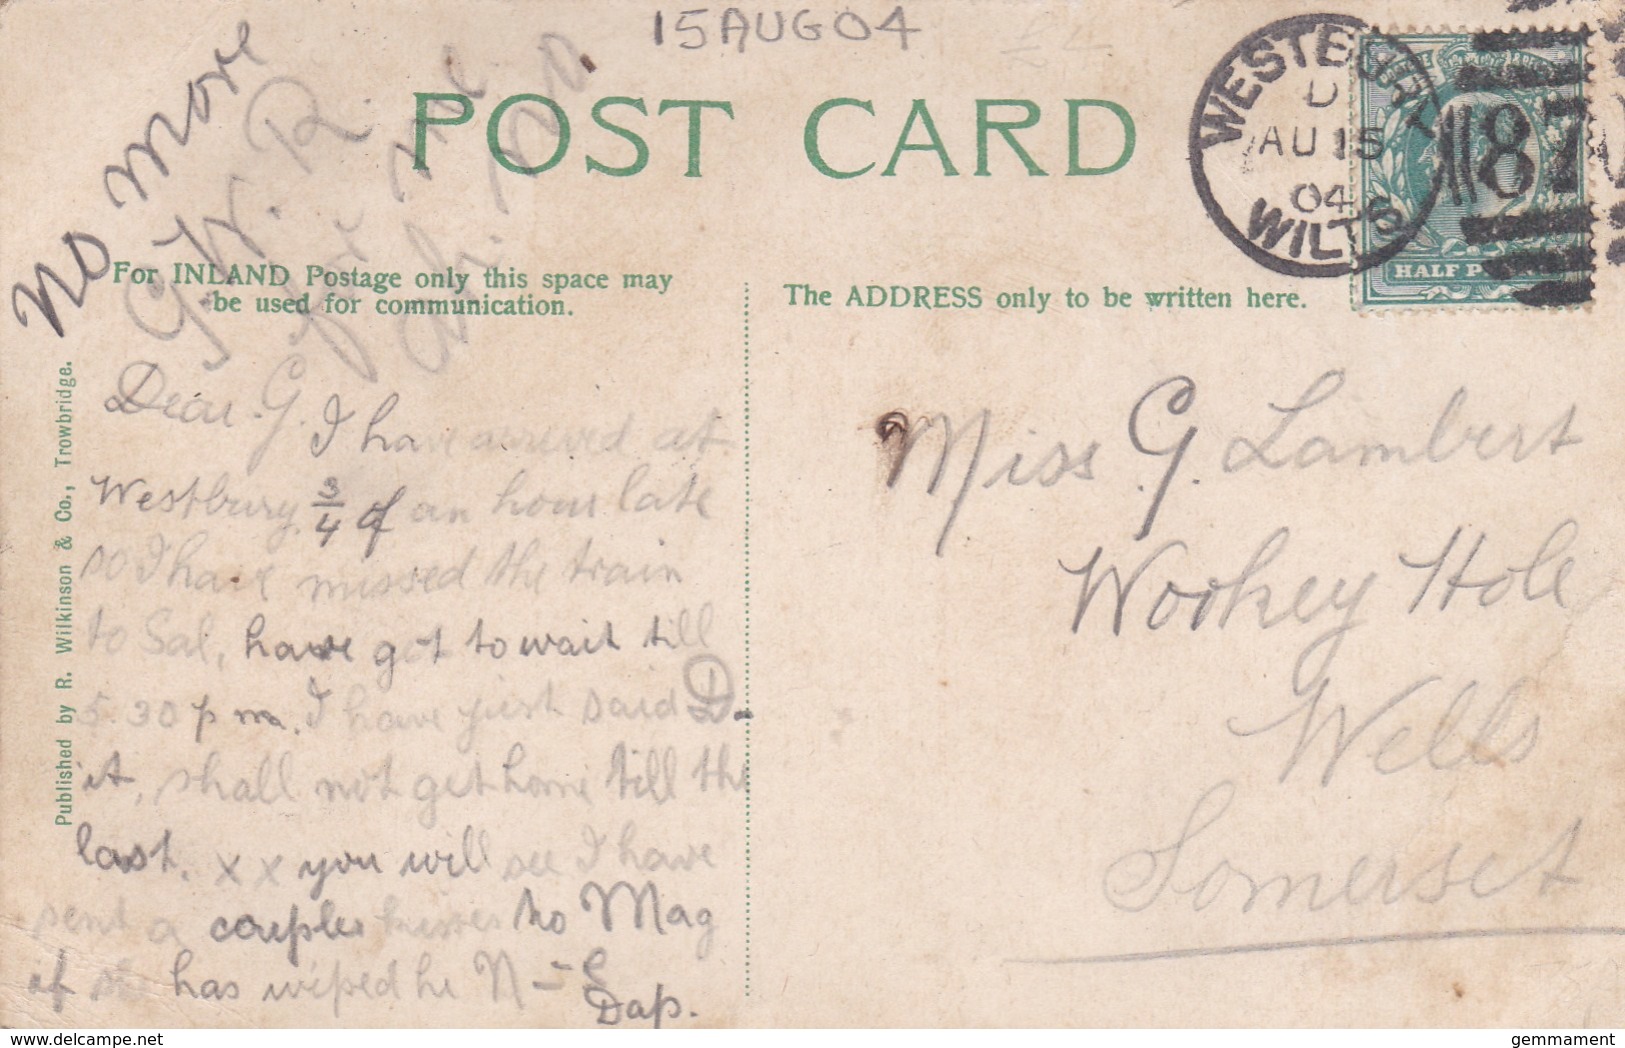 15AUG04
No more
G. W. R.
for me
Oh. No.
POST CARD
WESTBURY
D
AU 15
04
WILTS
87
HALF PENNY
For INLAND Postage only this space may
be used for communication.
The ADDRESS only to be written here.
Published by R. Wilkinson & Co., Trowbridge.
Dear G. I have arrived at
Westbury 3/4 of an hour late
so I have missed the train
to Sal, have got to wait till
5.30 pm. I have just said D-
it, shall not get home till the
last. x x you will see I have
sent a couple kisses to Mag
if she has wiped he N - E
Dap.
Miss G. Lambert
Wookey Hole
Wells
Somerset
gemmament